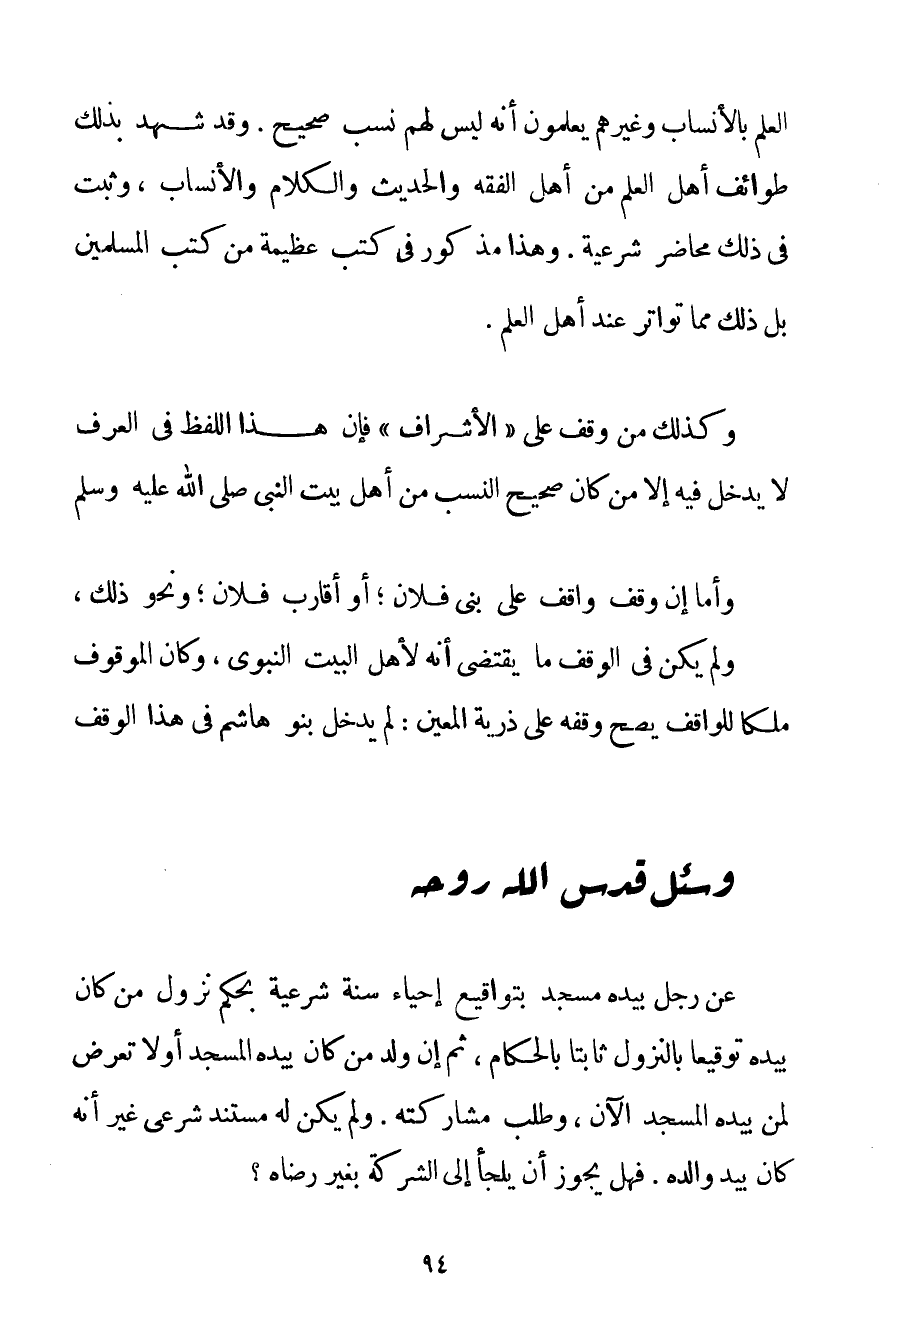 العلم بالأنساب وغيرهم يعلمون أنه ليس لهم نسب صحيح . وقد شهد بذلك
طوائف أهل العلم من أهل الفقه والحديث والكلام والأنساب ، وثبت
فى ذلك محاضر شرعية . وهذا مذكور فى كتب عظيمة من كتب المسلمين
بل ذلك مما تواتر عند أهل العلم .
وكذلك من وقف على « الأشراف » فإن هذا اللفظ فى العرف
لا يدخل فيه إلا من كان صحيح النسب من أهل بيت النبى صلى الله عليه وسلم
وأما إن وقف واقف على بنى فلان ؛ أو أقارب فلان ؛ ونحو ذلك ،
ولم يكن فى الوقف ما يقتضى أنه لأهل البيت النبوى ، وكان الموقوف
ملكا للواقف يصح وقفه على ذرية المعين : لم يدخل بنو هاشم فى هذا الوقف
وسئل قدس الله روحه
عن رجل بيده مسجد بتواقيع إحياء سنة شرعية بحكم نزول من كان
بيده توقيعا بالنزول ثابتا بالحكام ، ثم إن ولد من كان بيده المسجد أولا تعرض
لمن بيده المسجد الآن ، وطلب مشاركته . ولم يكن له مستند شرعى غير أنه
كان بيد والده . فهل يجوز أن يلجأ إلى الشركة بغير رضاه ؟
٩٤